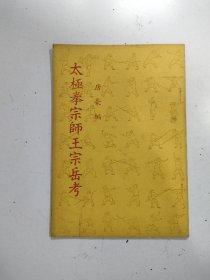 太極拳宗師王宗岳考
唐豪編